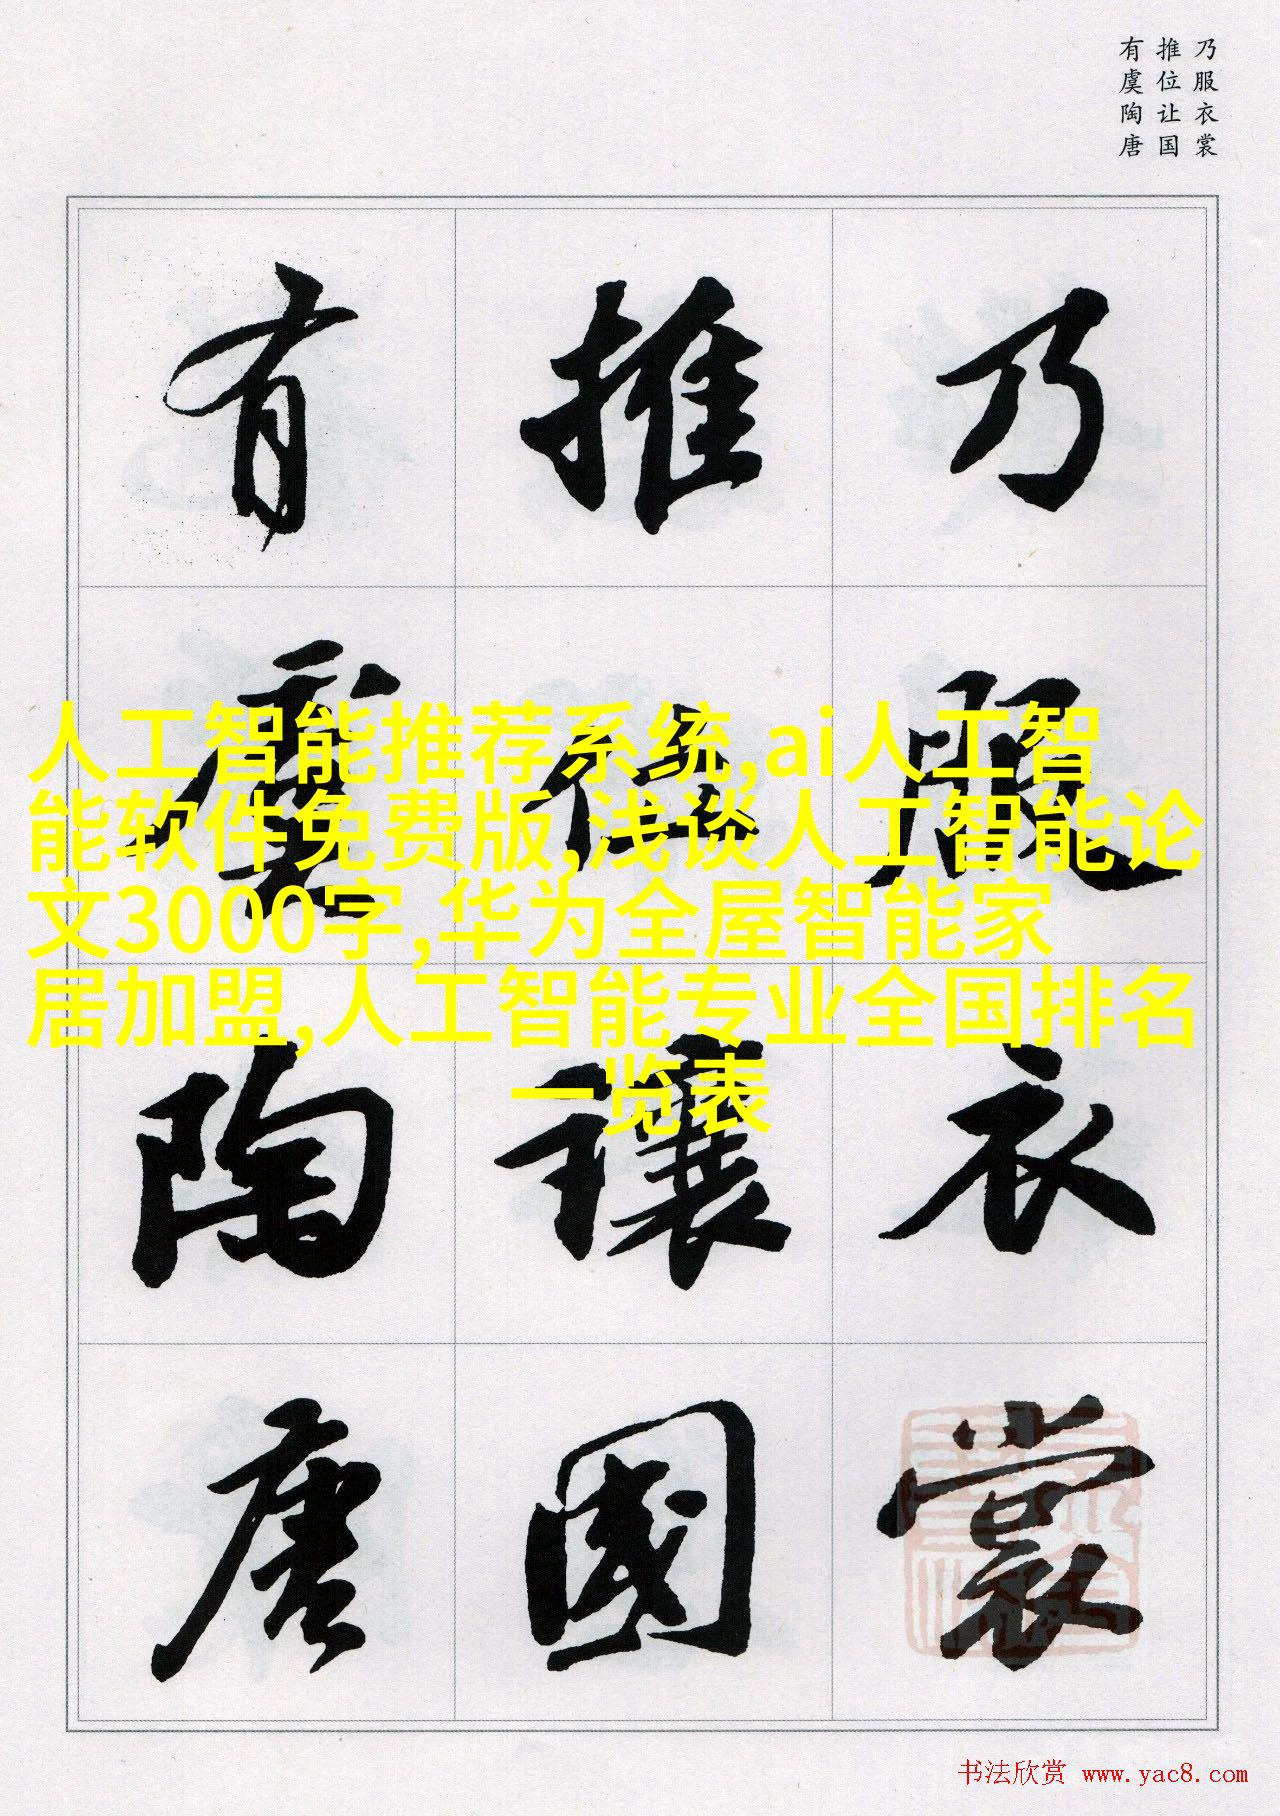 乃服衣裳
推位让国
有虞陶唐
乃服衣裳
推位讓國
有虞陶唐
人工智能推荐系统,ai人工智
能软件免费版,浅谈人工智能论
文3000字,华为全屋智能家
居加盟,人工智能专业全国排名
一览表
书法欣赏 www.yac8.com